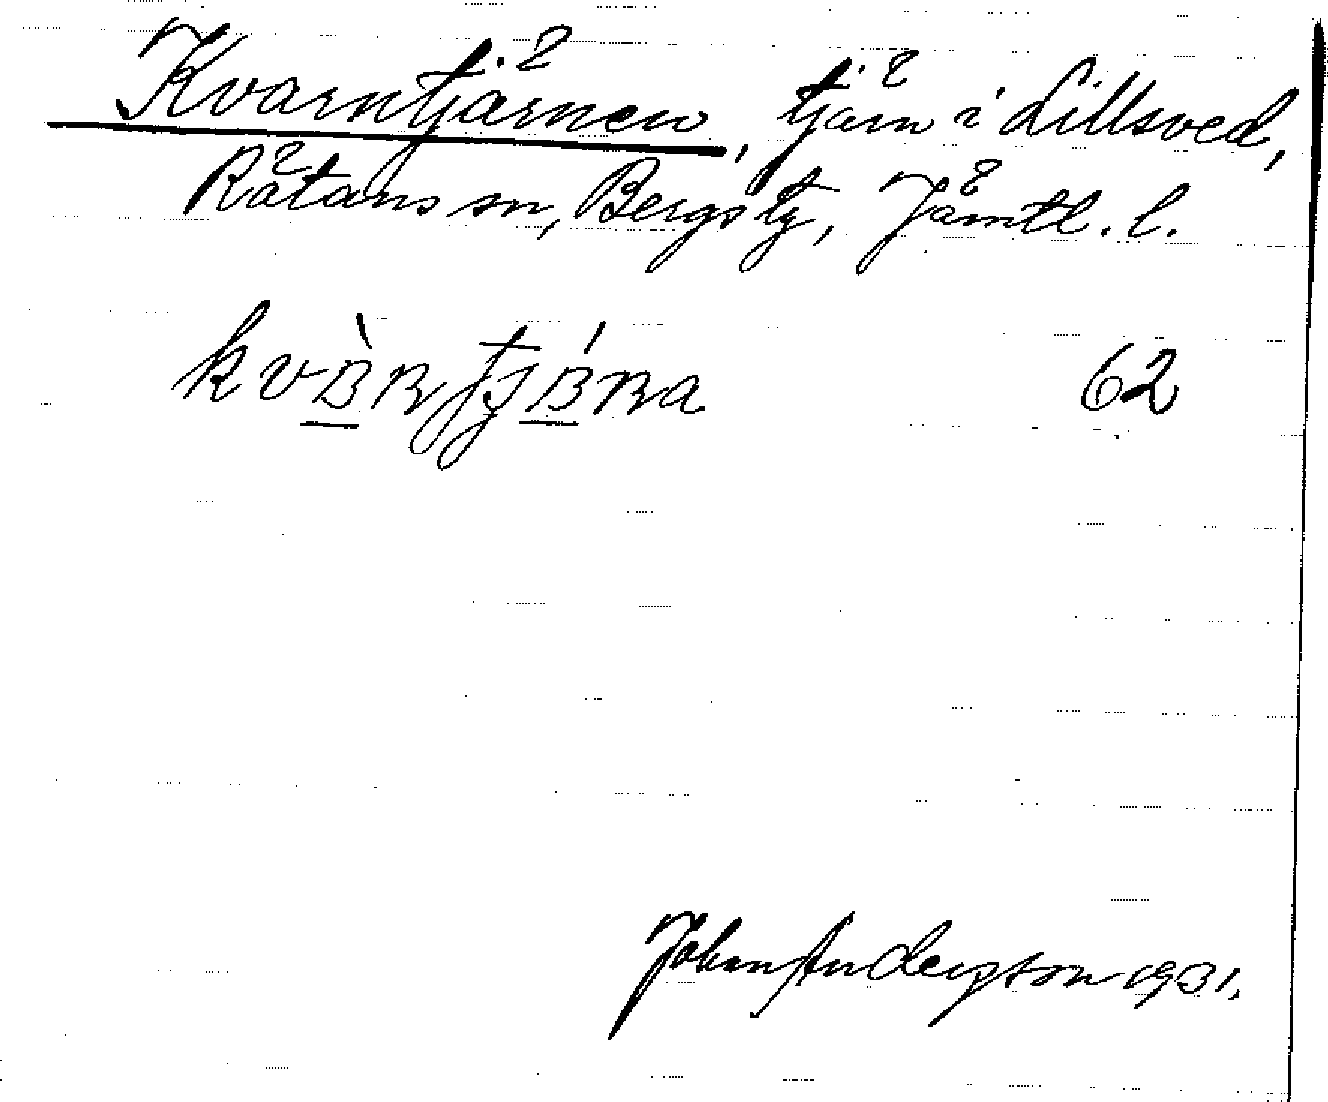 Kvarntjärnen, tjärn i Lillsved,
Rätans sn, Bergs tg, Jämtl. l.
62
Johan Anderson 1931.